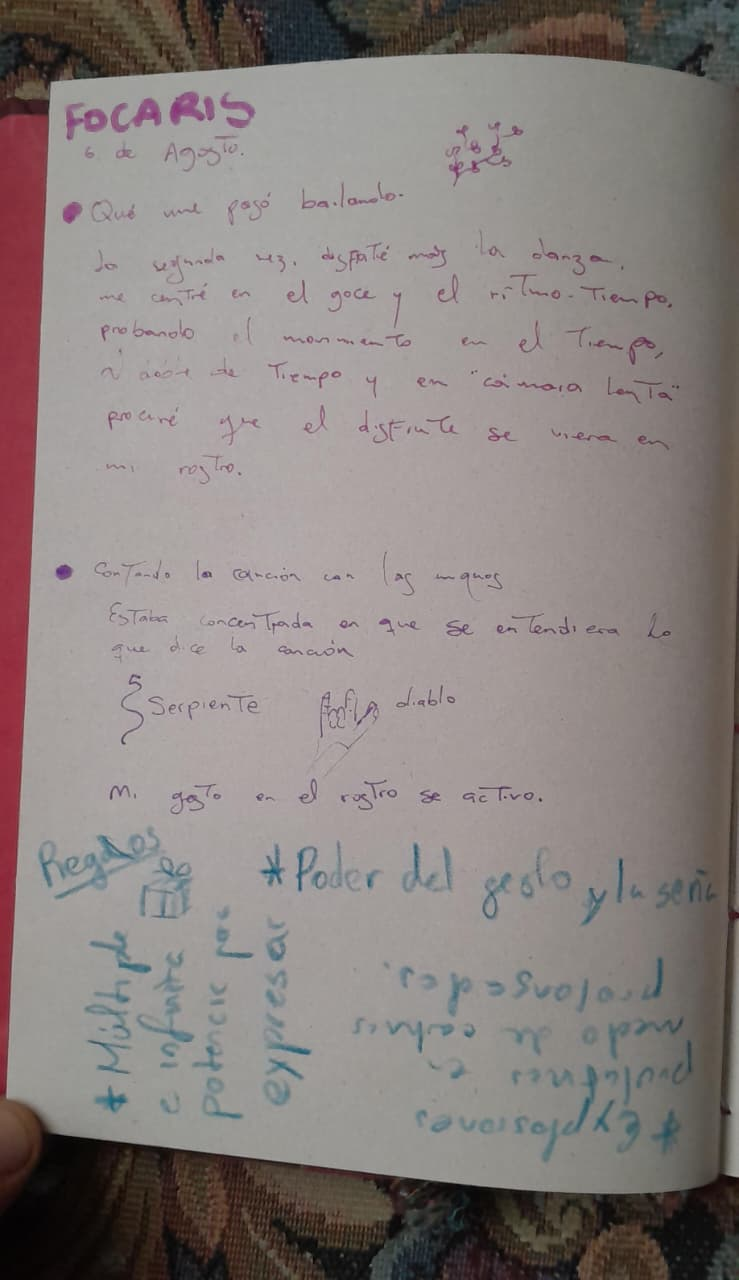 FOCARIS
6 de Agosto.
Qué me pasó bailando.
La segunda vez, disfruté más la danza,
me centré en el goce y el ritmo-tiempo,
probando el movimiento en el tiempo,
de tiempo y en "cámara lenta"
procuré que el disfrute se viera en
mi rostro.
Contando la canción con las manos
Estaba concentrada en que se entendiera lo
que dice la canción
Serpiente
diablo
Mi gesto en el rostro se activo.
Regalos
* Poder del gesto y la seña
* Múltiple
e infinita
potencia para
expresar
* Explosiones
en
medio de
prolongados.